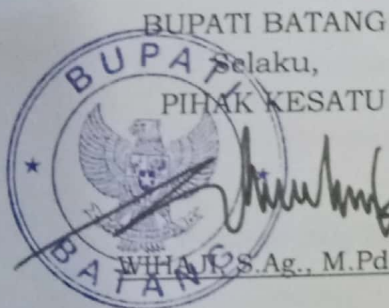 BUPATI BATANG
Selaku,
PIHAK KESATU
BUPATI
BATANG
WIHAJI, S.Ag., M.Pd